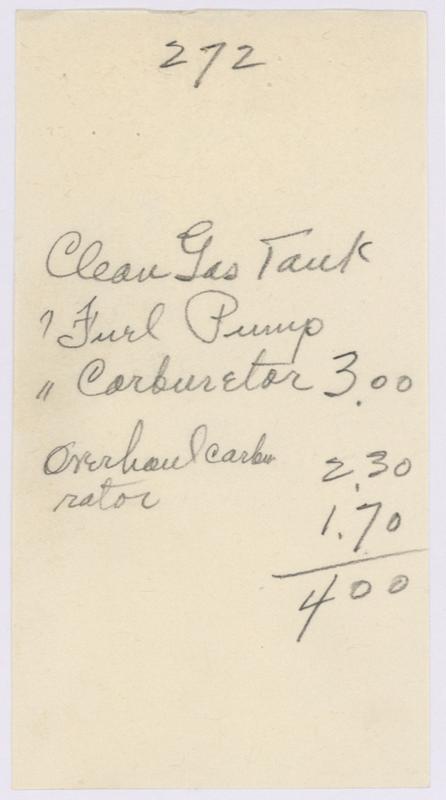 272
Clean Gas Tank
" Fuel Pump
" Carburetor 3.00
Overhaul carbu 2.30
rator
1.70
4 00